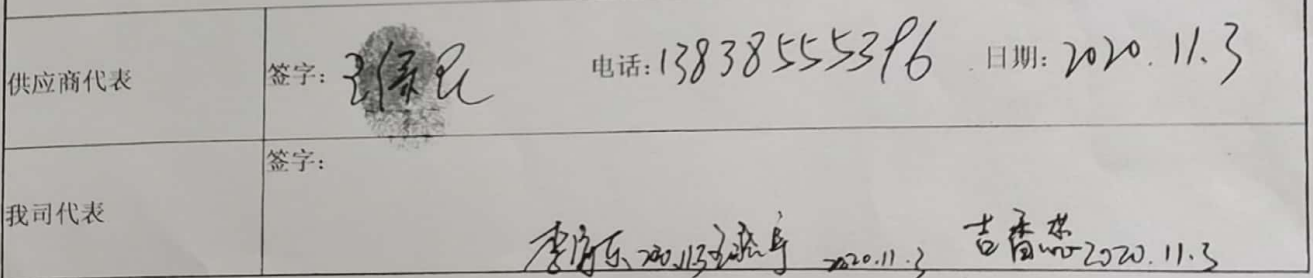 供应商代表 签字: 电话:13838555396 日期:2020.11.3
我司代表 签字:
2020.11.3 2020.11.3 2020.11.3